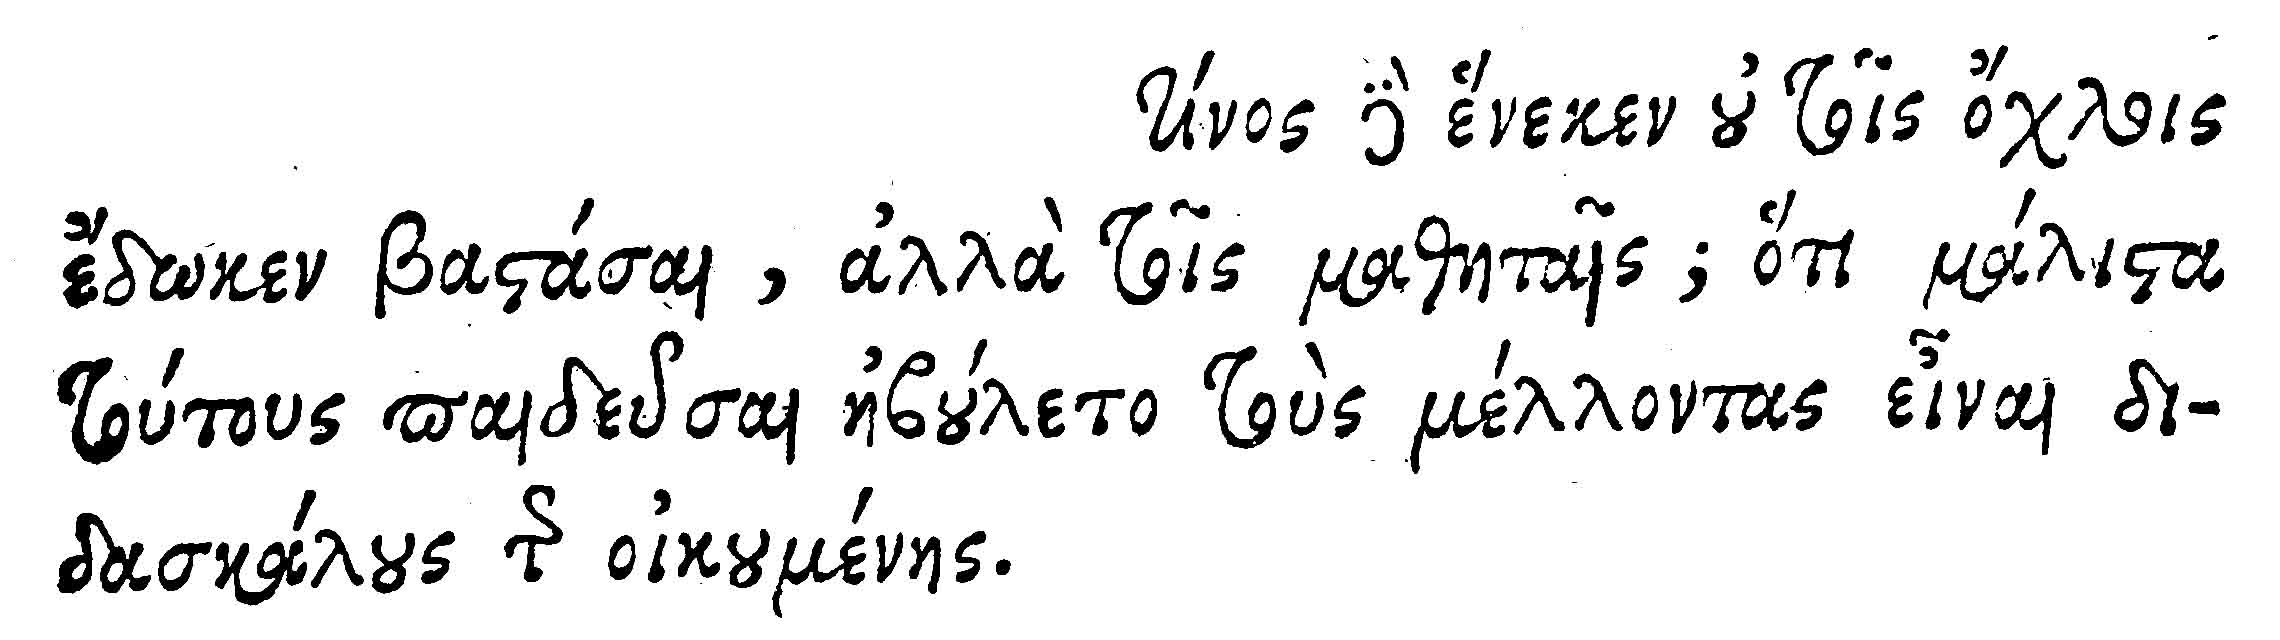 τίνος δὲ ἕνεκεν οὐ τοῖς ὄχλοις
ἔδωκεν βαστάσαι, ἀλλὰ τοῖς μαθηταῖς; ὅτι μάλιστα
τούτους παιδεῦσαι ἠβούλετο τοὺς μέλλοντας εἶναι δι-
δασκάλους τῆς οἰκουμένης.